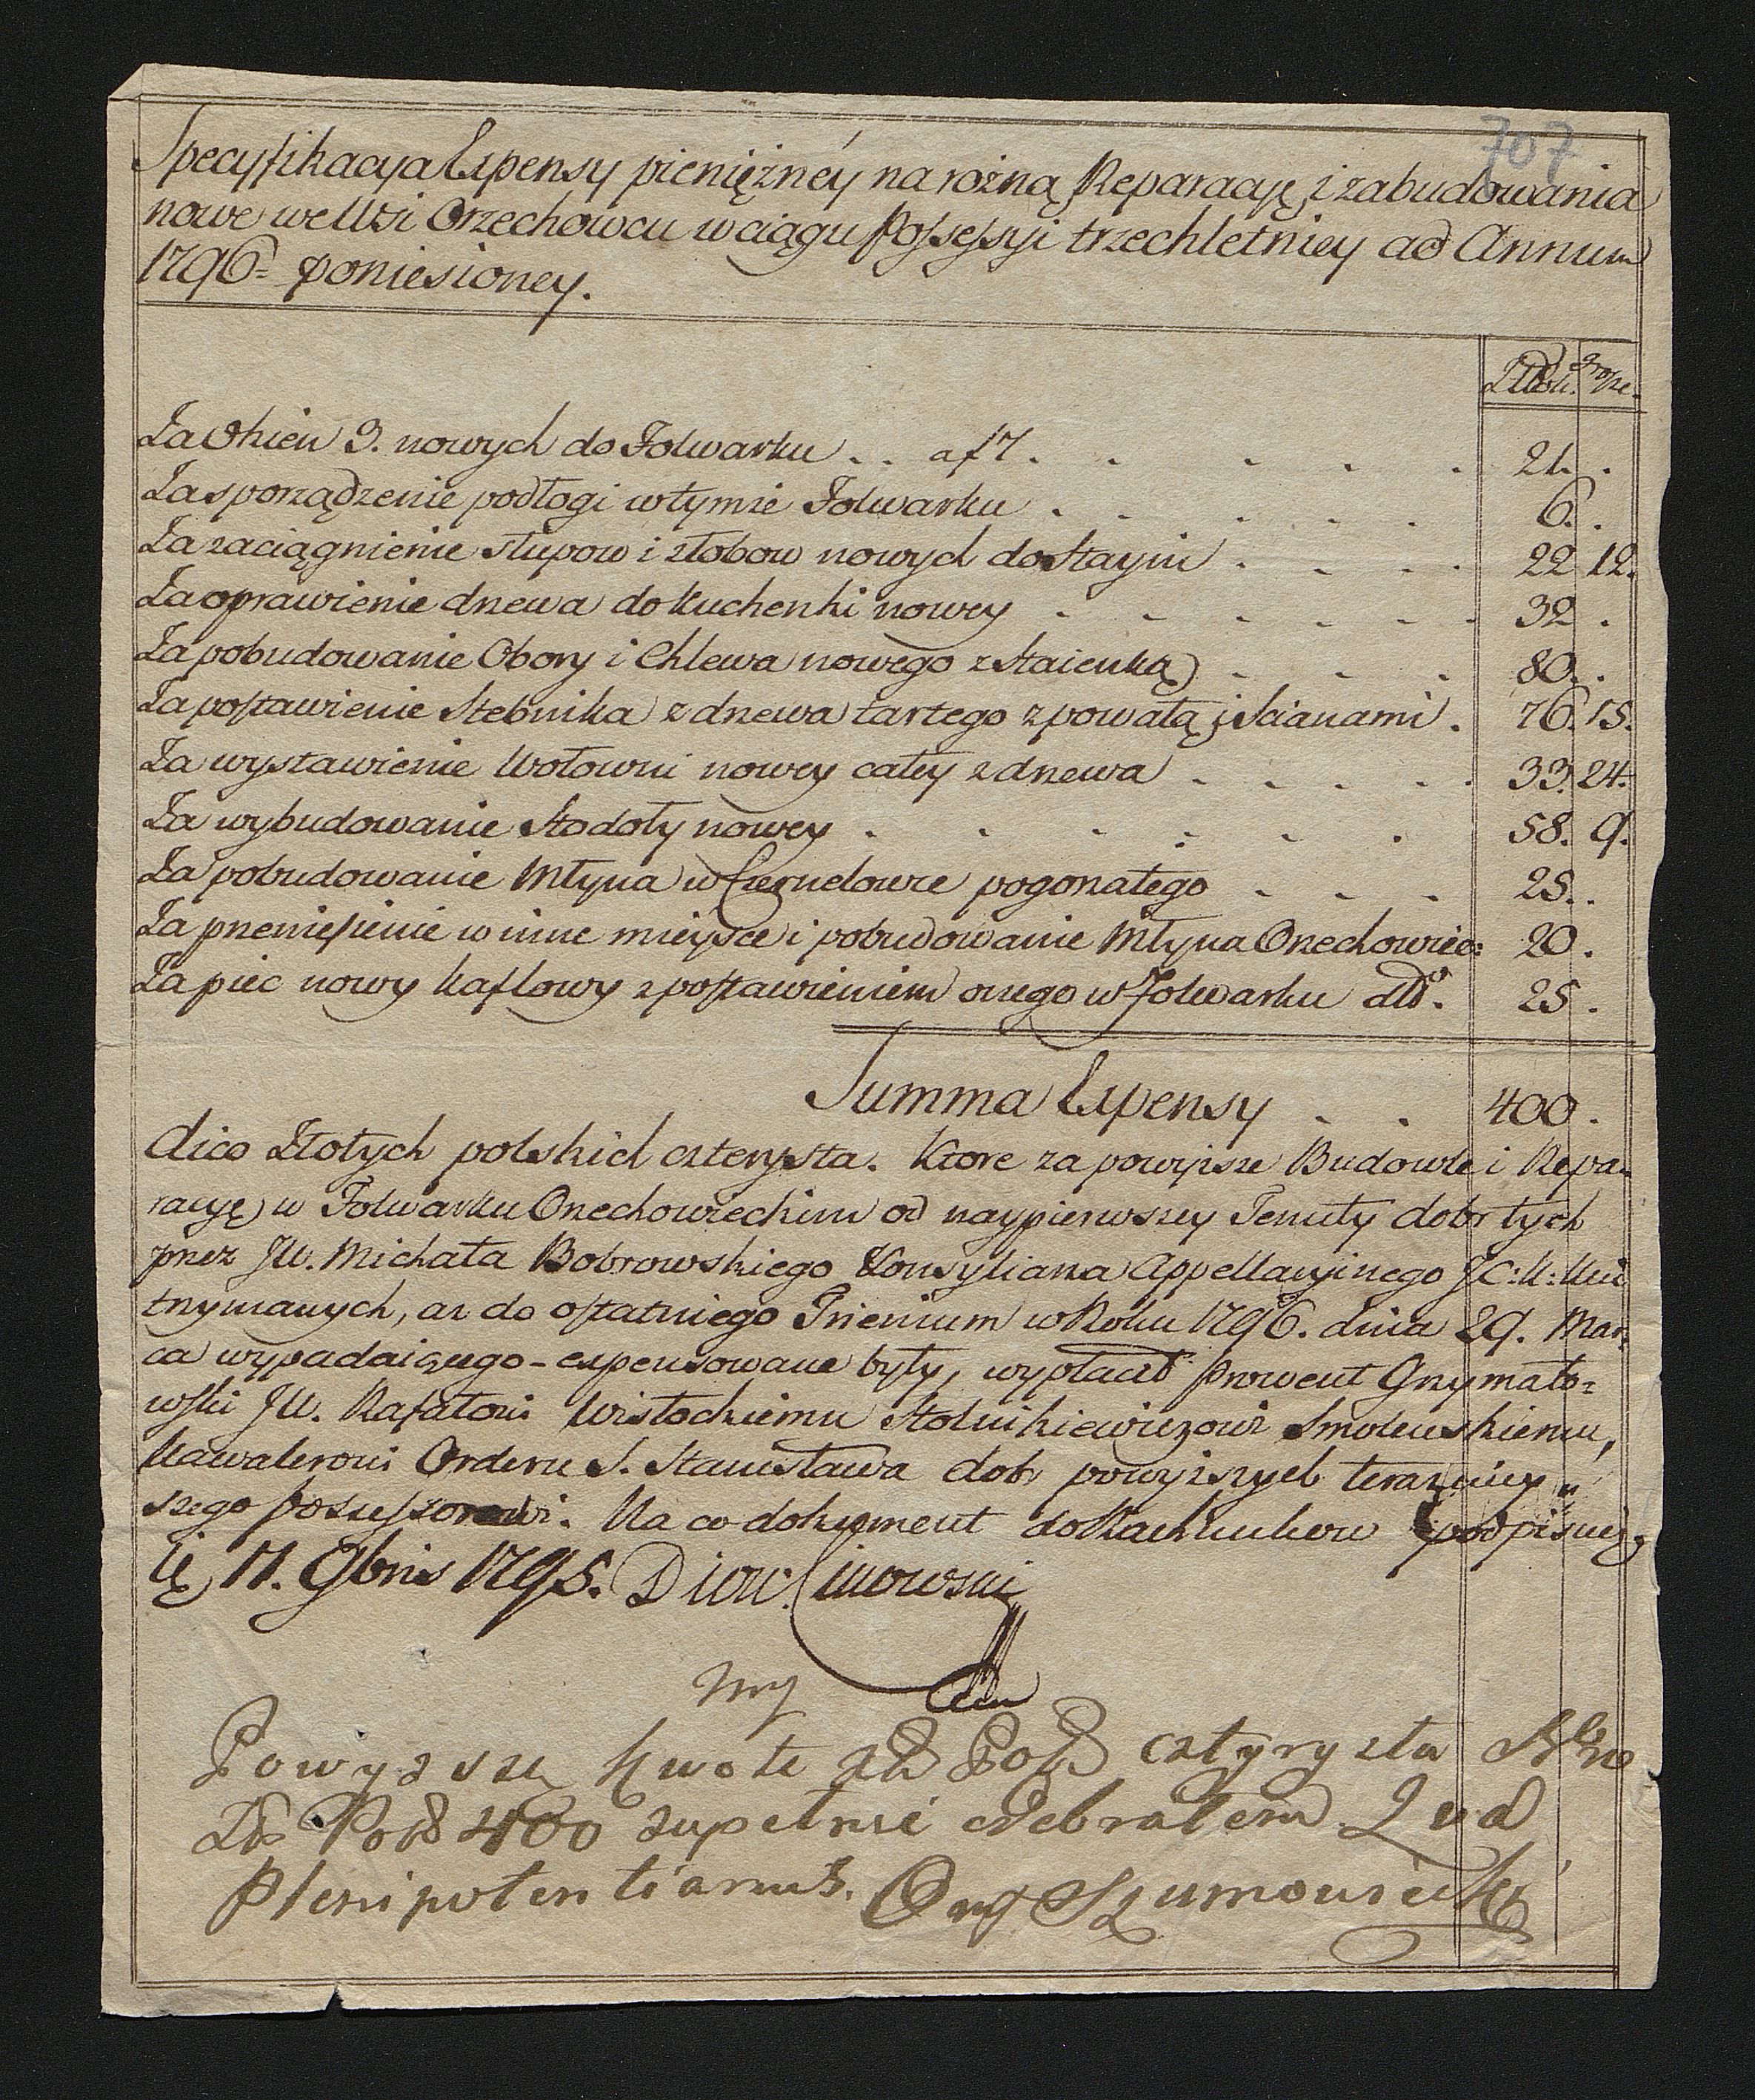 707
Specyfikacya Expensy pieniężnéy na rożną Reparacyę, i zabudowania
nowe we Wsi Orzechowcu w ciągu Possessyi trzechletniey ad Annum
1796= poniesioney.
Złote. grosze.
Za Okien 3. nowych do Folwarku . . a f 7 . . . . . 21. .
Za sporządzenie podłogi w tymże Folwarku . . . . . 6. .
Za zaciągnienie słupow i złobow nowych do Stayni . . . . 22 12.
Za oprawienie drzewa do kuchenki nowey . . . . . . 32 .
Za pobudowanie Obory i Chlewa nowego z Staienką . . . 80. .
Za postawienie Stebnika z drzewa tartego z powałą i Scianami . 76. 15.
Za wystawienie Wołowni nowey całey z drzewa . . . . . 33. 24.
Za wybudowanie Stodoły nowey . . . . . . 58. 9.
Za pobudowanie Młyna w pogonałego . . . 25. .
Za przeniesienie w inne mieysce i pobudowanie Młyna Orzechowiec: 20 .
Za piec nowy kaflowy z postawieniem onego w Folwarku dtto. 25 .
Summa Expensy . . 400 .
dico Złotych polskich czterysta. Ktore za powyższe Budowle i Repa-
racyę w Folwarku Orzechowieckim od naypierwszey Tenuty dobr tych
przez JW. Michała Bobrowskiego Konsyliarza Appellacyinego J:C:K:
trzymanych, az do ostatniego Trienium w Roku 1796. dnia 29. Mar-
ca wypadaiącego - expensowane były, wypłacił Prowent Grzymało-
wski JW. Rafałowi Wisłockiemu Stolnikiewiczowi Smolenskiemu,
Kawalerowi Orderu S. Stanisława dobr powyższych teraznie-
szego possessorowi. Na co dokument do Rachunkow podpisuię
się 11. 9bris 1795.
mp
Powyzszą kwotę zł Pol: cztyrysta Nro
Zł Pol 400 zupełnie odebrałem Qua
Plenipotentiarius.